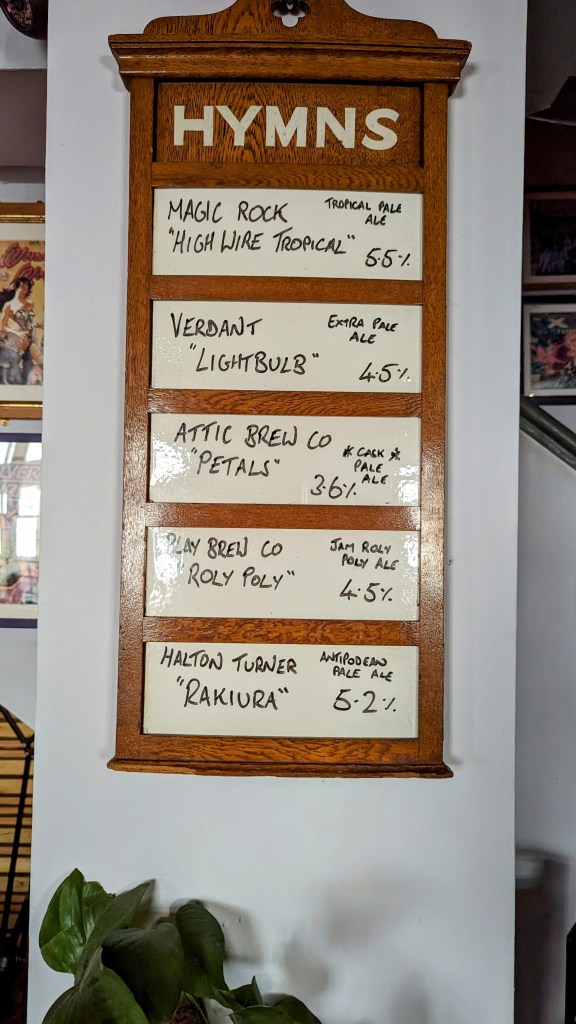 HYMNS
MAGIC ROCK
"HIGH WIRE TROPICAL"
TROPICAL PALE
ALE
5.5%
VERDANT
"LIGHTBULB"
EXTRA PALE
ALE
4.5%
ATTIC BREW CO
"PETALS"
* CASK *
PALE
ALE
3.6%
PLAY BREW CO
"ROLY POLY"
JAM ROLY
POLY ALE
4.5%
HALTON TURNER
"RAKIURA"
ANTIPODEAN
PALE ALE
5.2%